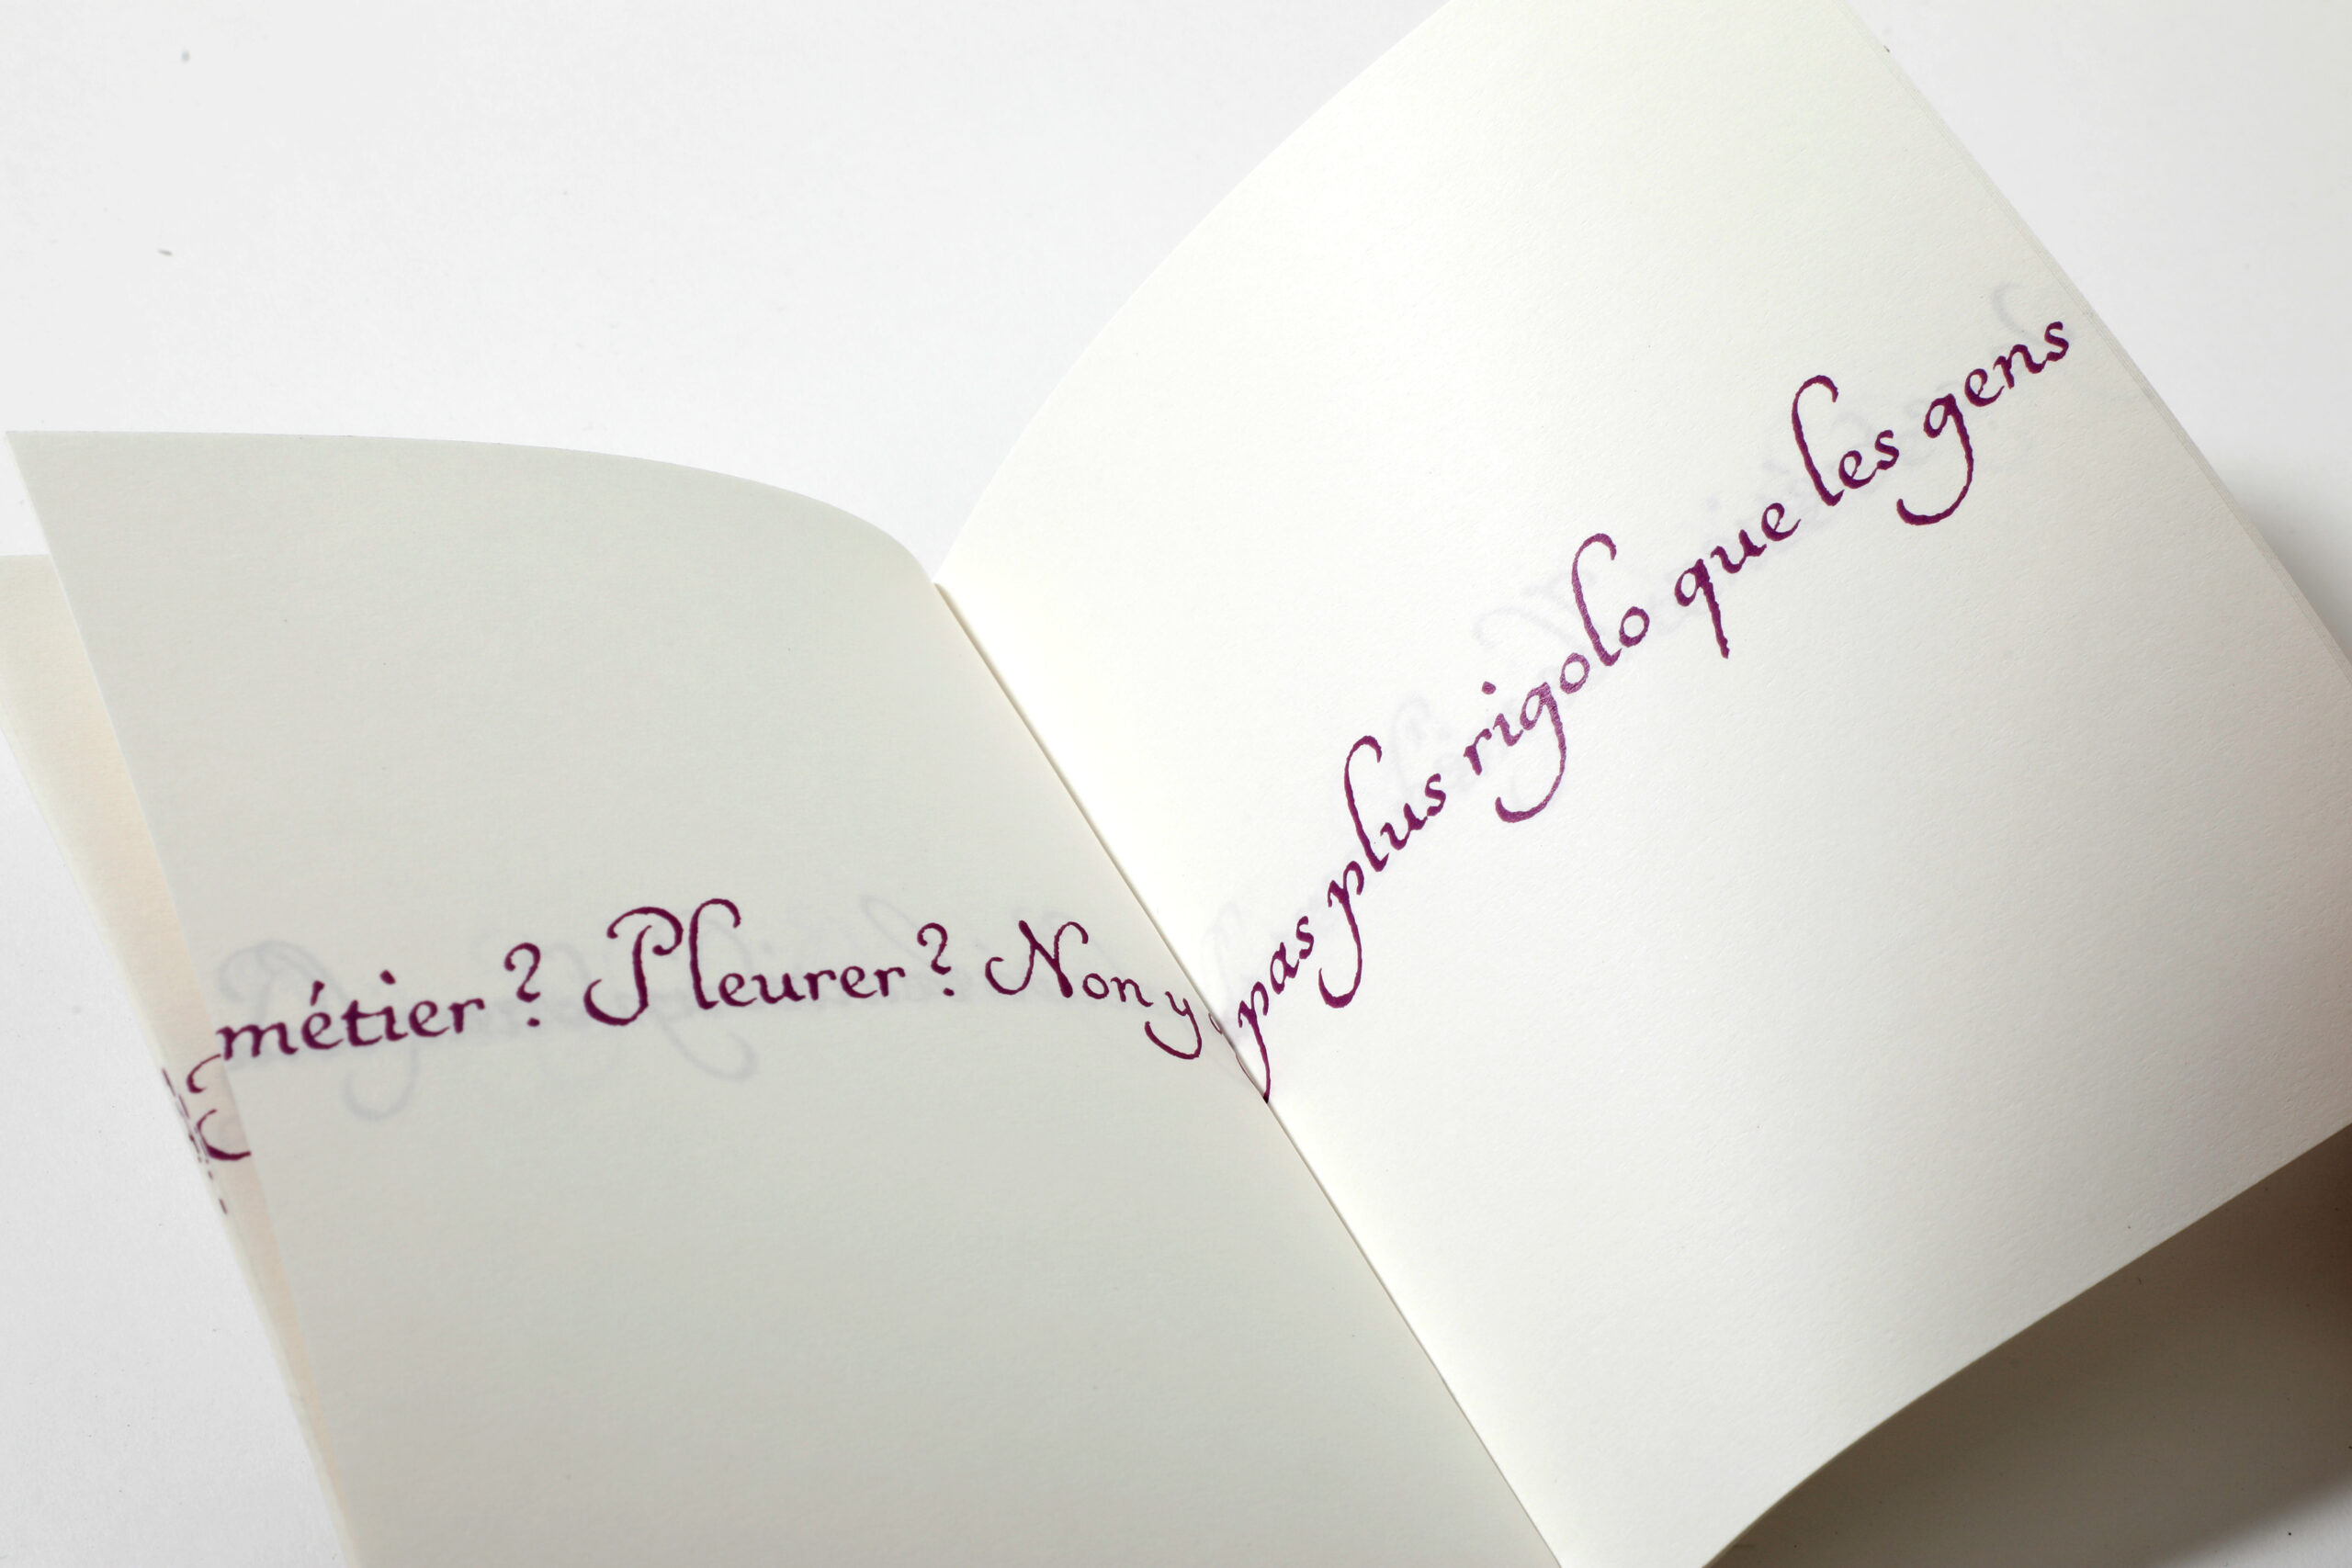 métier ? Pleurer ? Non y a pas plus rigolo que les gens